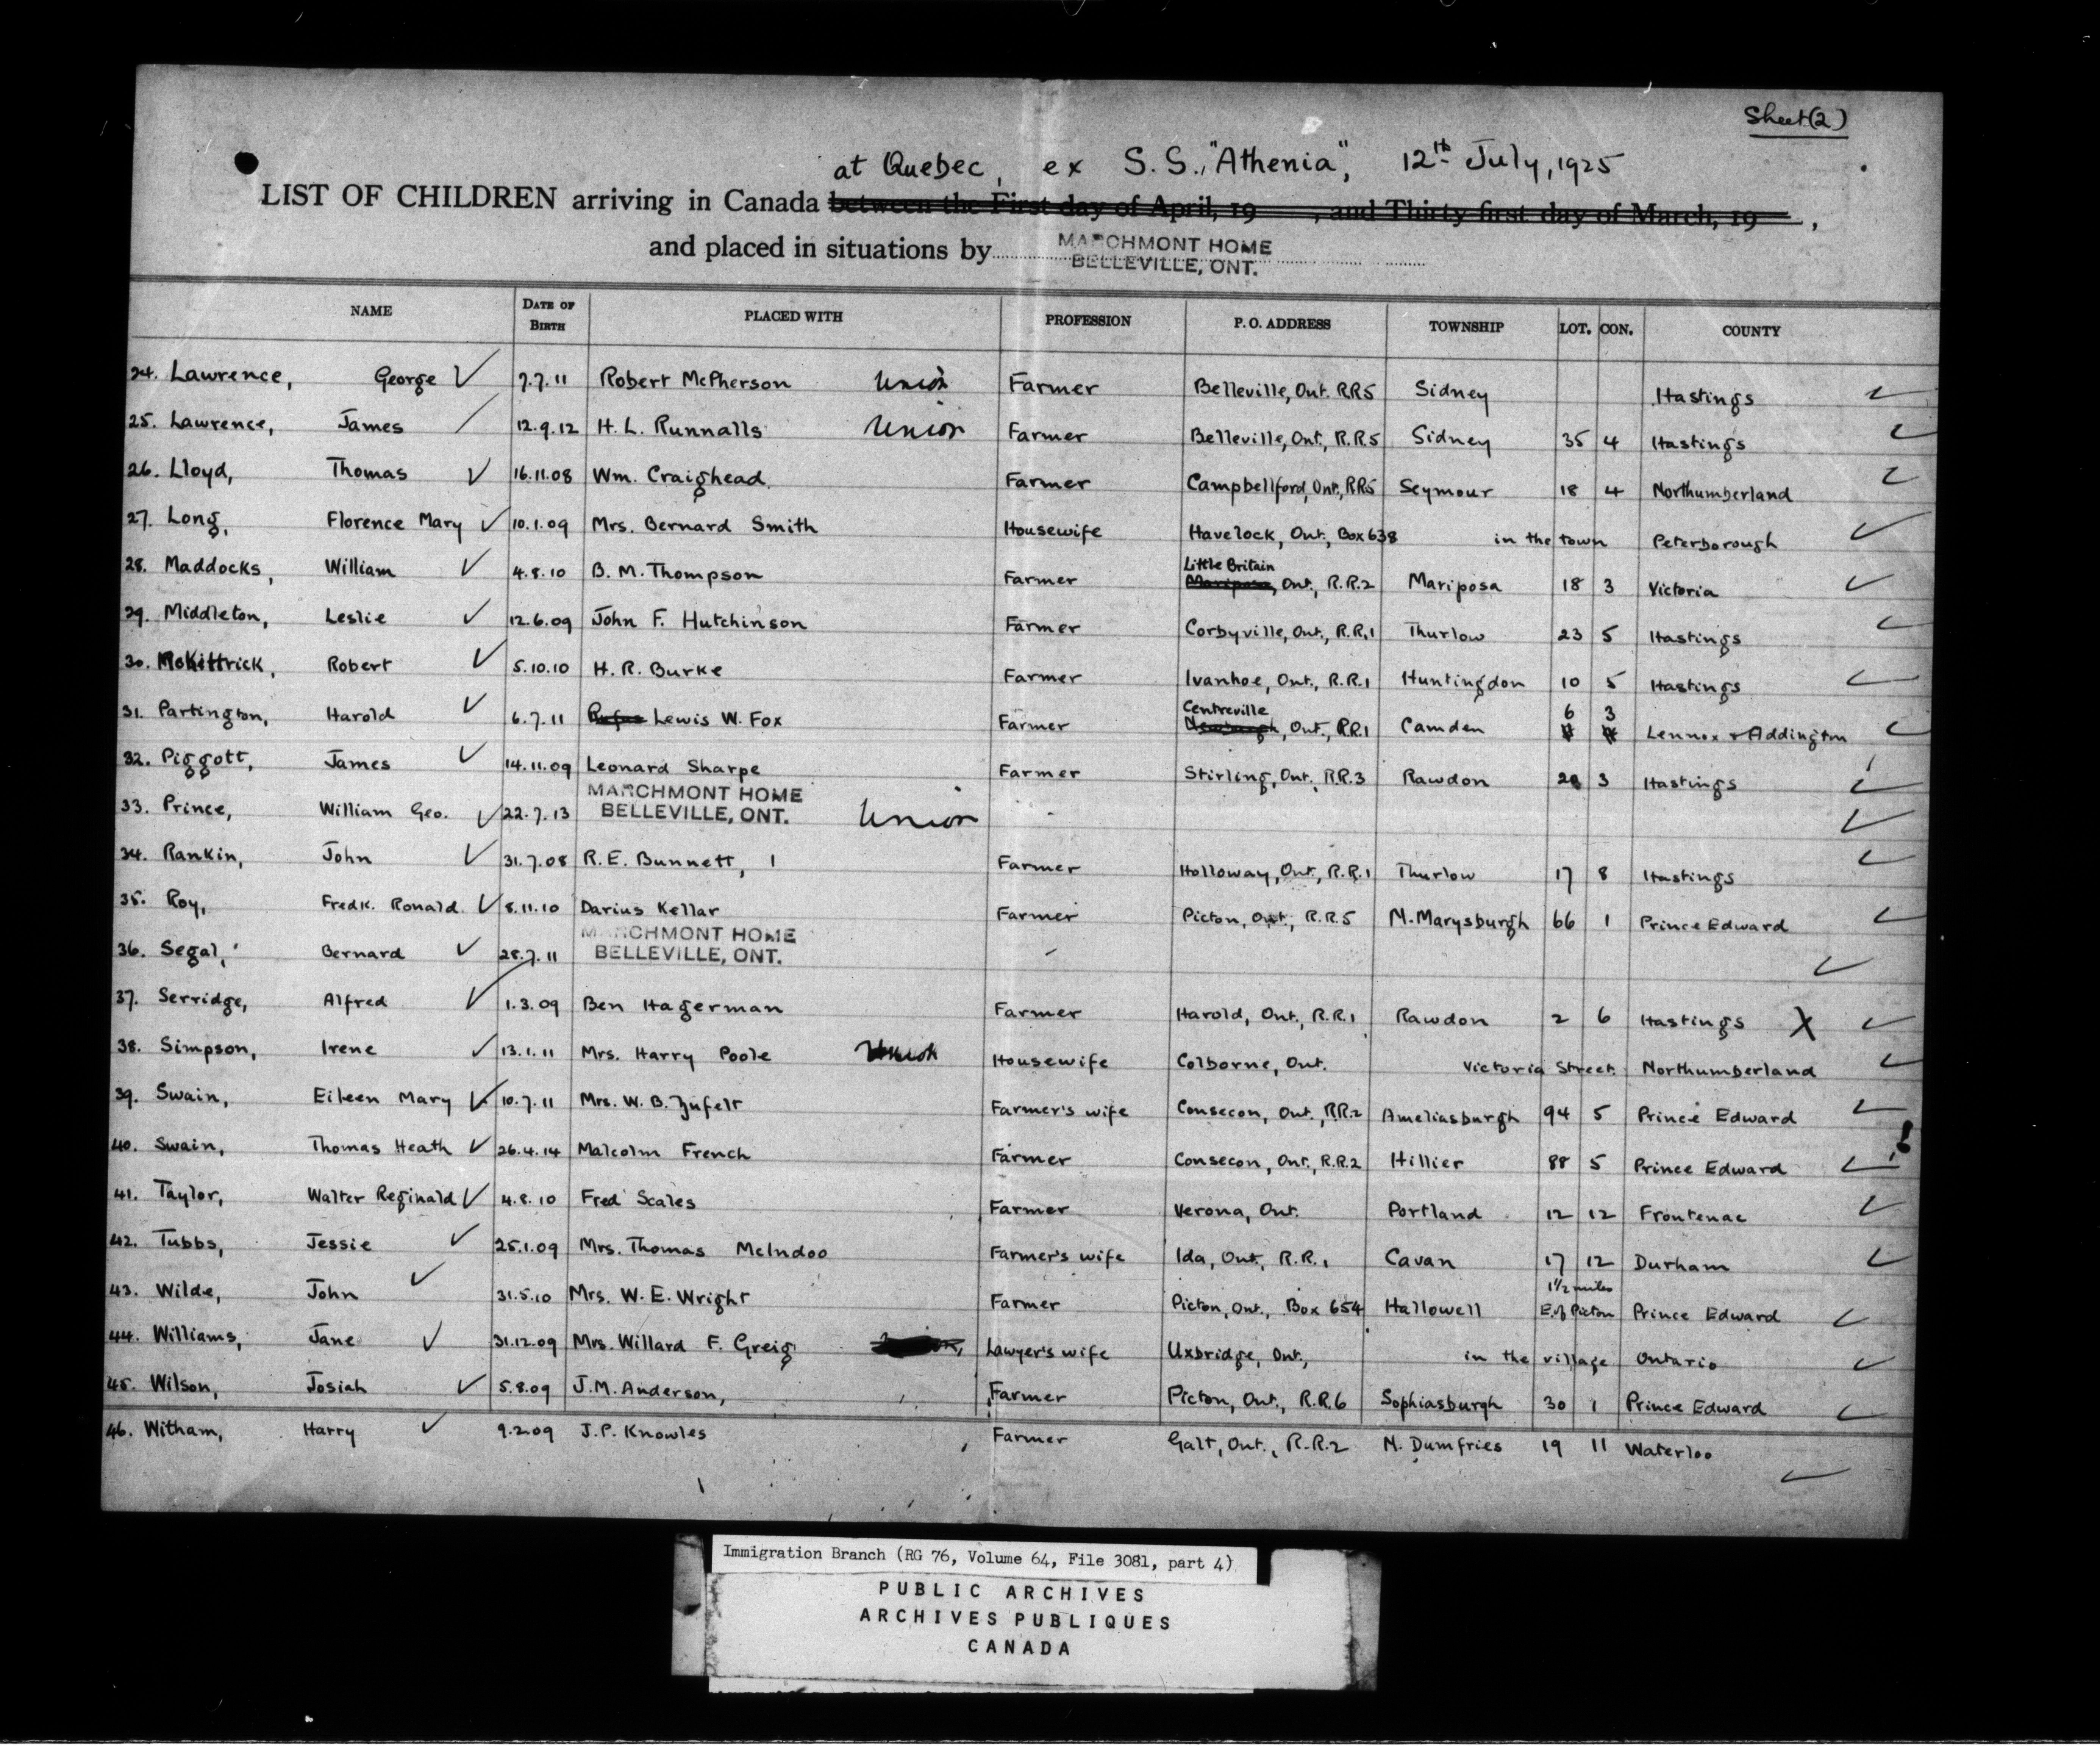 Sheet (2)
at Quebec, ex S.S. "Athenia", 12th July, 1925
LIST OF CHILDREN arriving in Canada between the First day of April, 19 , and Thirty first day of March, 19 ,
and placed in situations by MARCHMONT HOME
BELLEVILLE, ONT.
NAME DATE OF BIRTH PLACED WITH PROFESSION P. O. ADDRESS TOWNSHIP LOT. CON. COUNTY
24. Lawrence, George 7.7.11 Robert McPherson Union Farmer Belleville, Ont. RR5 Sidney Hastings
25. Lawrence, James 12.9.12 H. L. Runnalls Union Farmer Belleville, Ont, R.R.5 Sidney 35 4 Hastings
26. Lloyd, Thomas 16.11.08 Wm. Craighead Farmer Campbellford, Ont, RR5 Seymour 18 4 Northumberland
27. Long, Florence Mary 10.1.09 Mrs. Bernard Smith Housewife Havelock, Ont., Box 638 in the town Peterborough
Little Britain
28. Maddocks, William 4.8.10 B. M. Thompson Farmer Mariposa, Ont., R.R.2 Mariposa 18 3 Victoria
29. Middleton, Leslie 12.6.09 John F. Hutchinson Farmer Corbyville, Ont., R.R.1 Thurlow 23 5 Hastings
30. McKittrick, Robert 5.10.10 H. R. Burke Farmer Ivanhoe, Ont., R.R.1 Huntingdon 10 5 Hastings
Centreville 6 3
31. Partington, Harold 6.7.11 Rufus Lewis W. Fox Farmer Newburgh, Ont., RR1 Camden Lennox & Addington
32. Piggott, James 14.11.09 Leonard Sharpe Farmer Stirling, Ont., RR.3 Rawdon 3 Hastings
33. Prince, William Geo. 22.7.13 MARCHMONT HOME
BELLEVILLE, ONT. Union -
34. Rankin, John 31.7.08 R. E. Bunnett, 1 Farmer Holloway, Ont., R.R.1 Thurlow 17 8 Hastings
35. Roy, Fredk. Ronald. 8.11.10 Darius Kellar Farmer Picton, Ont., R.R.5 N. Marysburgh 66 1 Prince Edward
36. Segal, Bernard 28.7.11 MARCHMONT HOME
BELLEVILLE, ONT. -
37. Serridge, Alfred 1.3.09 Ben Hagerman Farmer Harold, Ont., R.R.1 Rawdon 2 6 Hastings X
38. Simpson, Irene 13.1.11 Mrs. Harry Poole Union Housewife Colborne, Ont. Victoria Street. Northumberland
39. Swain, Eileen Mary 10.7.11 Mrs. W. B. Zufelt Farmer's wife Consecon, Ont., RR.2 Ameliasburgh 94 5 Prince Edward
40. Swain, Thomas Heath 26.4.14 Malcolm French Farmer Consecon, Ont., R.R.2 Hillier 88 5 Prince Edward
41. Taylor, Walter Reginald 4.8.10 Fred Scales Farmer Verona, Ont. Portland 12 12 Frontenac
42. Tubbs, Jessie 25.1.09 Mrs. Thomas McIndoo Farmer's wife Ida, Ont., R.R.1 Cavan 17 12 Durham
1½ miles
43. Wilde, John 31.5.10 Mrs. W. E. Wright Farmer Picton, Ont., Box 654 Hallowell E. of Picton Prince Edward
44. Williams, Jane 31.12.09 Mrs. Willard F. Greig Lawyer's wife Uxbridge, Ont., in the village Ontario
45. Wilson, Josiah 5.8.09 J. M. Anderson, Farmer Picton, Ont., R.R.6 Sophiasburgh 30 1 Prince Edward
46. Witham, Harry 9.2.09 J. P. Knowles Farmer Galt, Ont., R.R.2 N. Dumfries 19 11 Waterloo
Immigration Branch (RG 76, Volume 64, File 3081, part 4)
PUBLIC ARCHIVES
ARCHIVES PUBLIQUES
CANADA